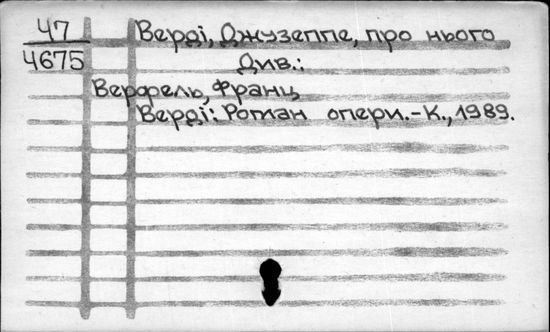 47 Верді, Джузеппе, про нього
4675 Див.:
Верфель, Франц
Верді: Роман опери.-К., 1989.